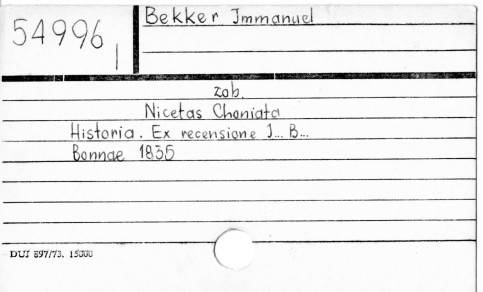 54996
Bekker Immanuel
zob.
Nicetas Choniata
Historia. Ex recensione I... B...
Bonnae 1835
DUJ 897/73. 15000